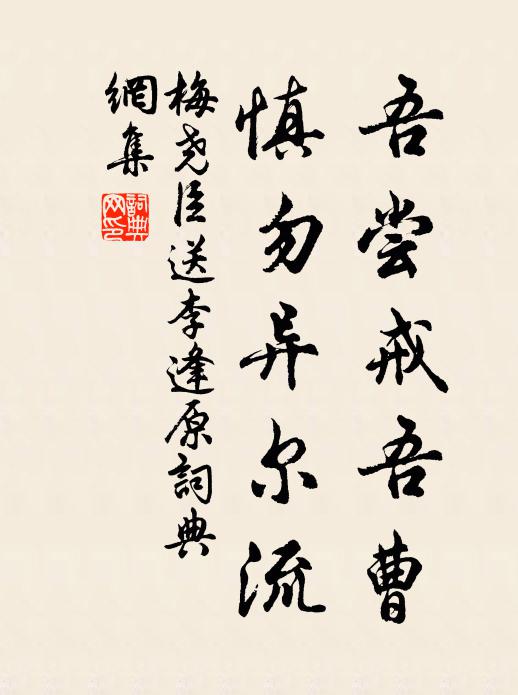 吾尝戒吾曹
慎勿异尔流
梅尧臣送李逢原詞典
網集
詞典网印